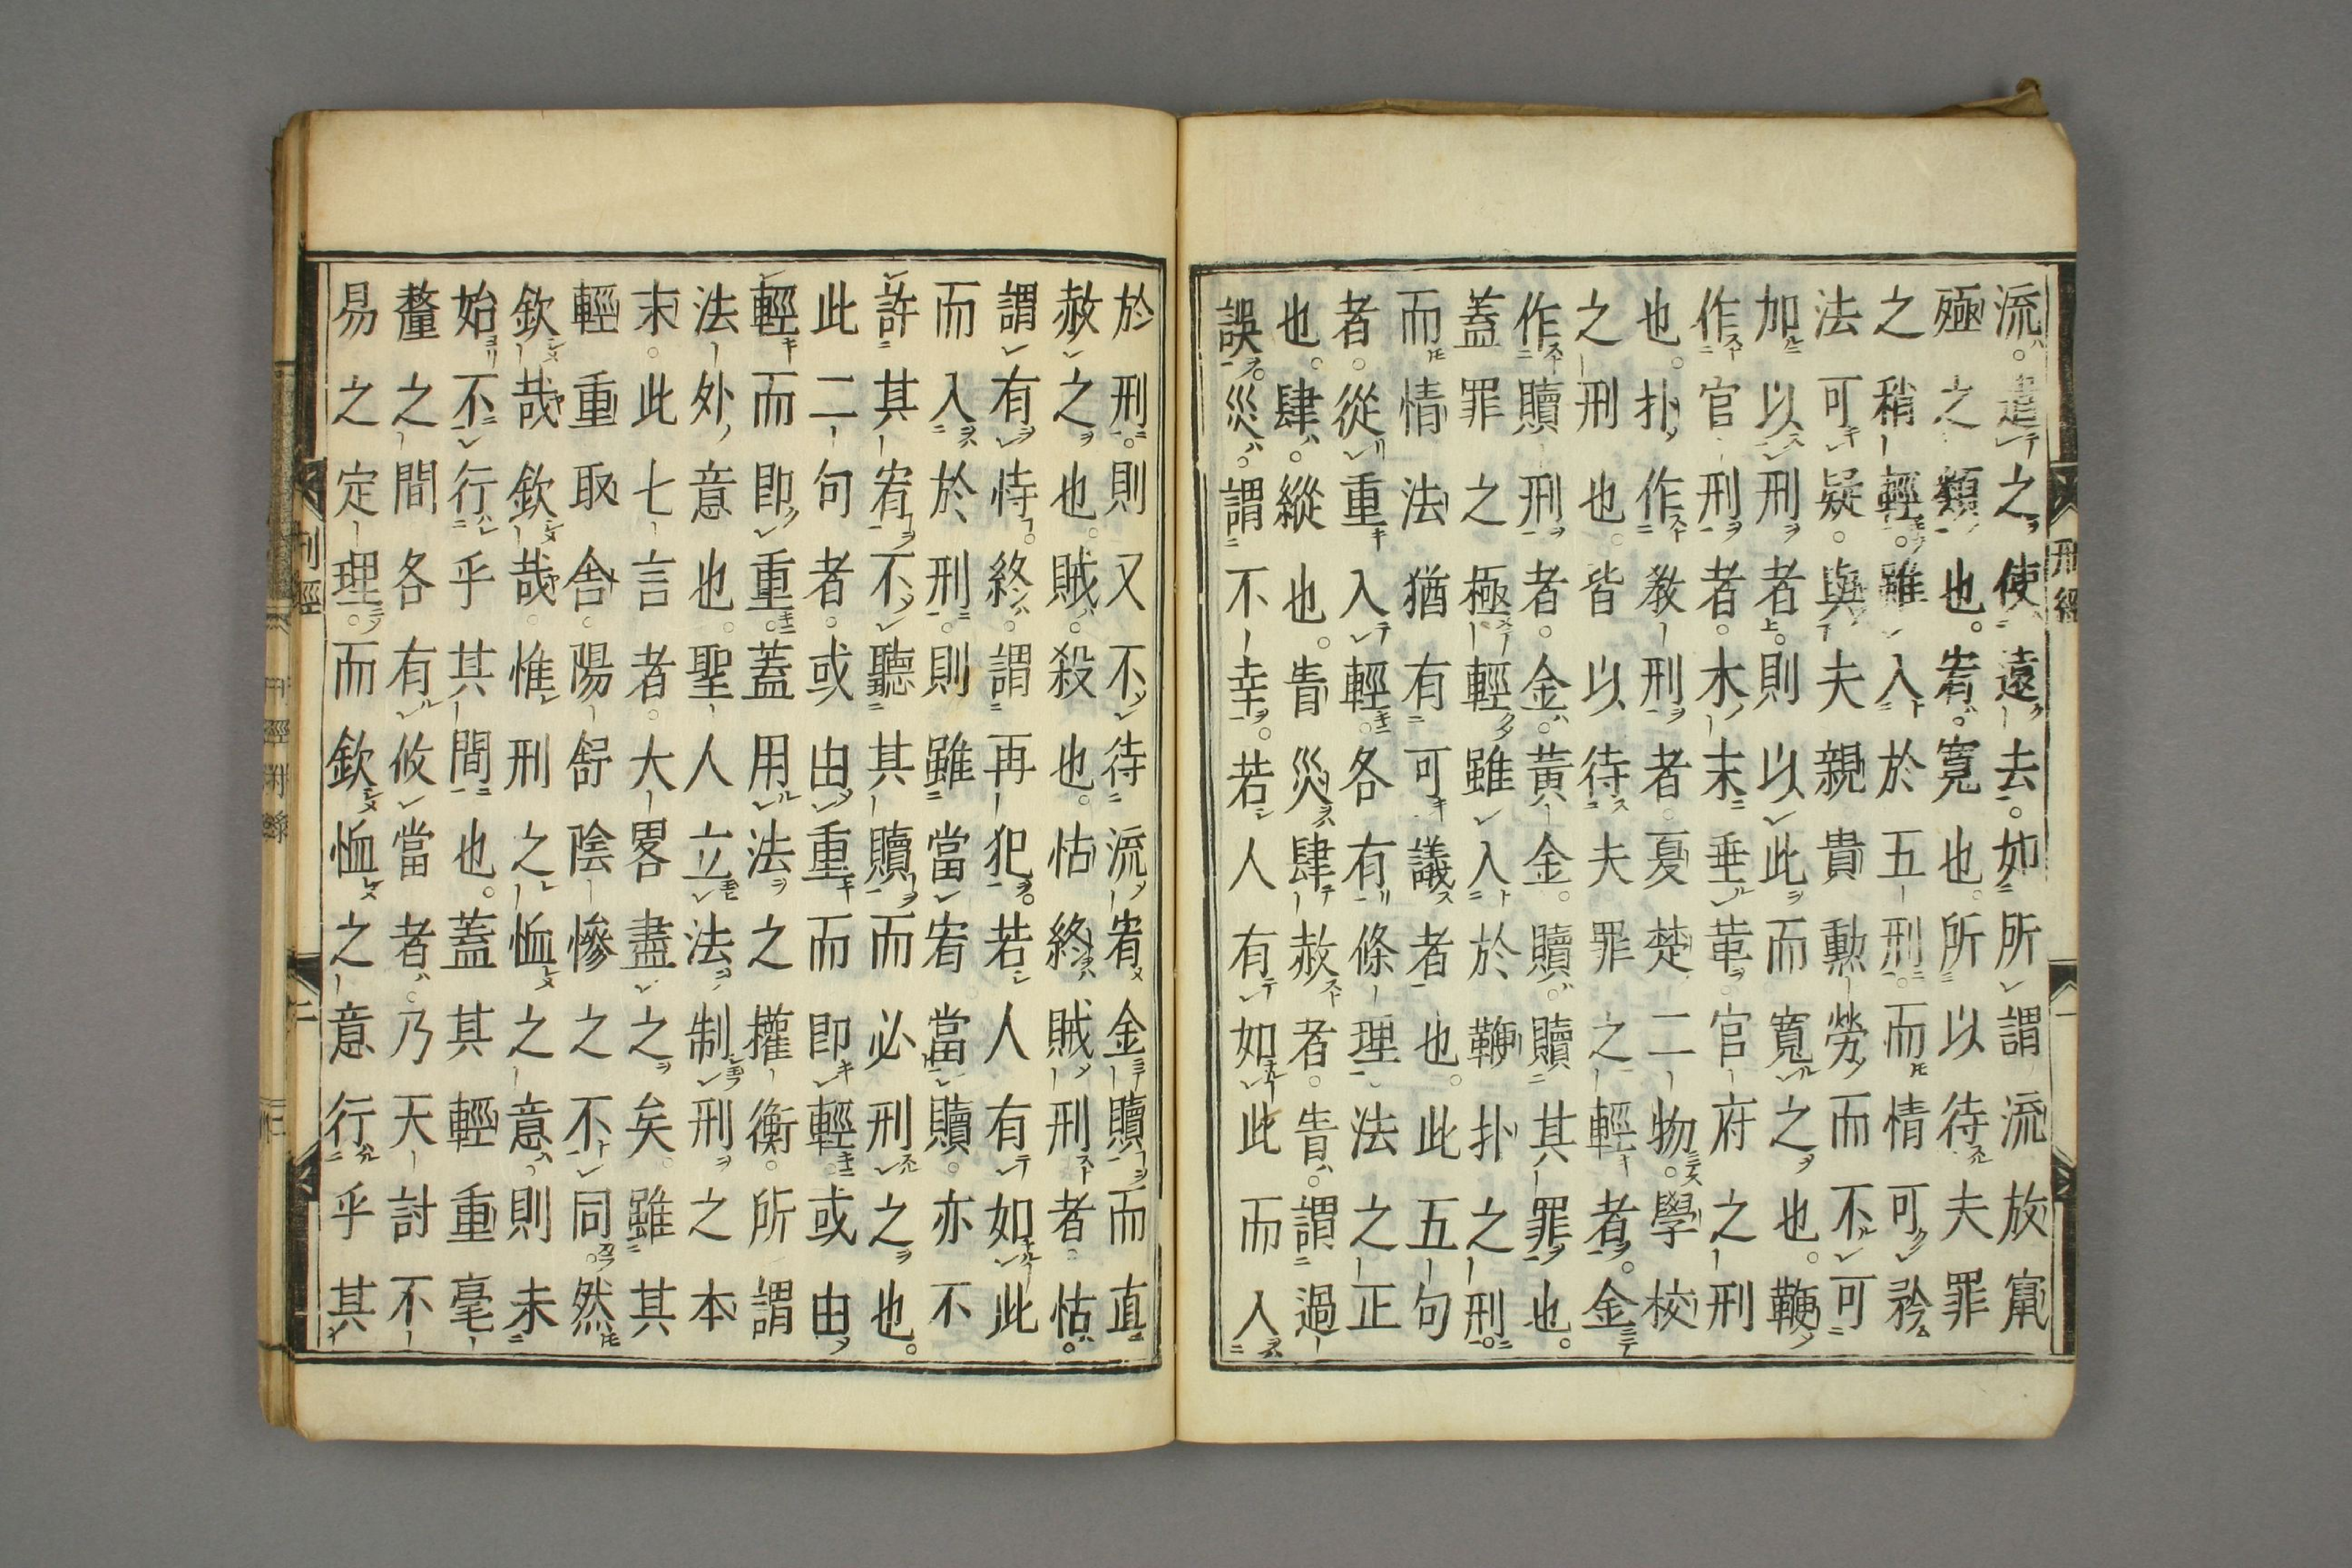 流遣之使遠去如所謂流放竄
殛之類也宥寬也所以待夫罪
之稍輕雖入於五刑而情可矜
法可疑與夫親貴勲勞而不可
加以刑者則以此而寬之也鞭
作官刑者木末垂革官府之刑
也扑作教刑者夏楚二物學校
之刑也皆以待夫罪之輕者金
作贖刑者金黃金贖贖其罪也
蓋罪之極輕雖入於鞭扑之刑
而情法猶有可議者也此五句
者從重入輕各有條理法之正
也肆縱也眚災肆赦者眚謂過
誤災謂不幸若人有如此而入
於刑則又不待流宥金贖而直
赦之也賊殺也怙終賊刑者怙
謂有恃終謂再犯若人有如此
而入於刑則雖當宥當贖亦不
許其宥不聽其贖而必刑之也
此二句者或由重而即輕或由
輕而即重蓋用法之權衡所謂
法外意也聖人立法制刑之本
末此七言者大畧盡之矣雖其
輕重取舍陽舒陰慘之不同然
欽哉欽哉惟刑之恤之意則未
始不行乎其間也蓋其輕重毫
釐之間各有攸當者乃天討不
易之定理而欽恤之意行乎其
刑經
刑經
一
二
刑經附錄